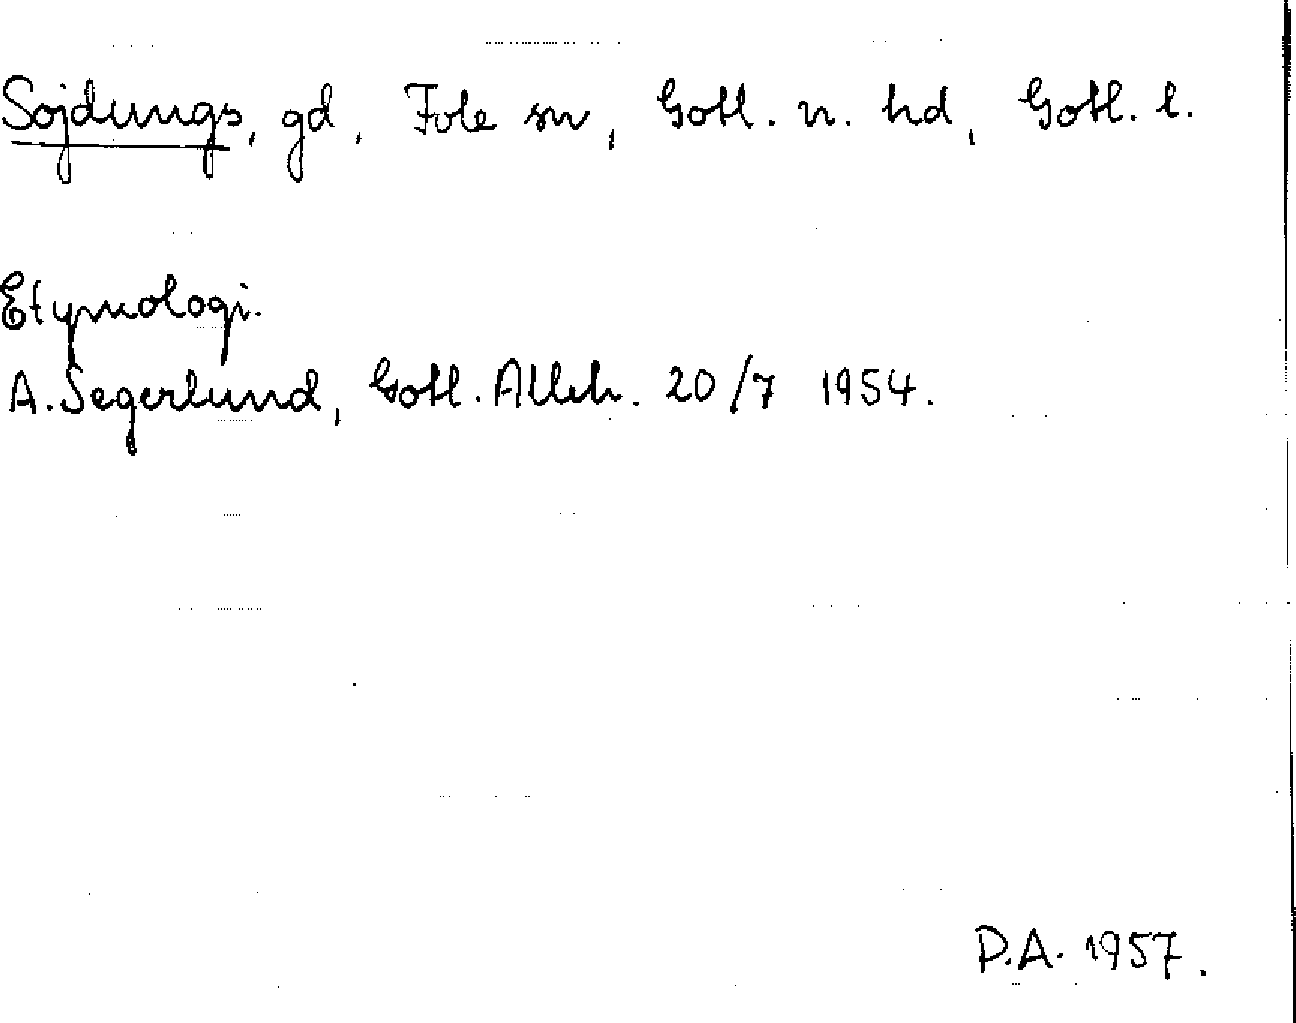 Sojdungs, gd, Fole sn, Gotl. n. hd, Gotl. l.
Etymologi.
A. Segerlund, Gotl. Alleh. 20/7 1954.
P.A. 1957.